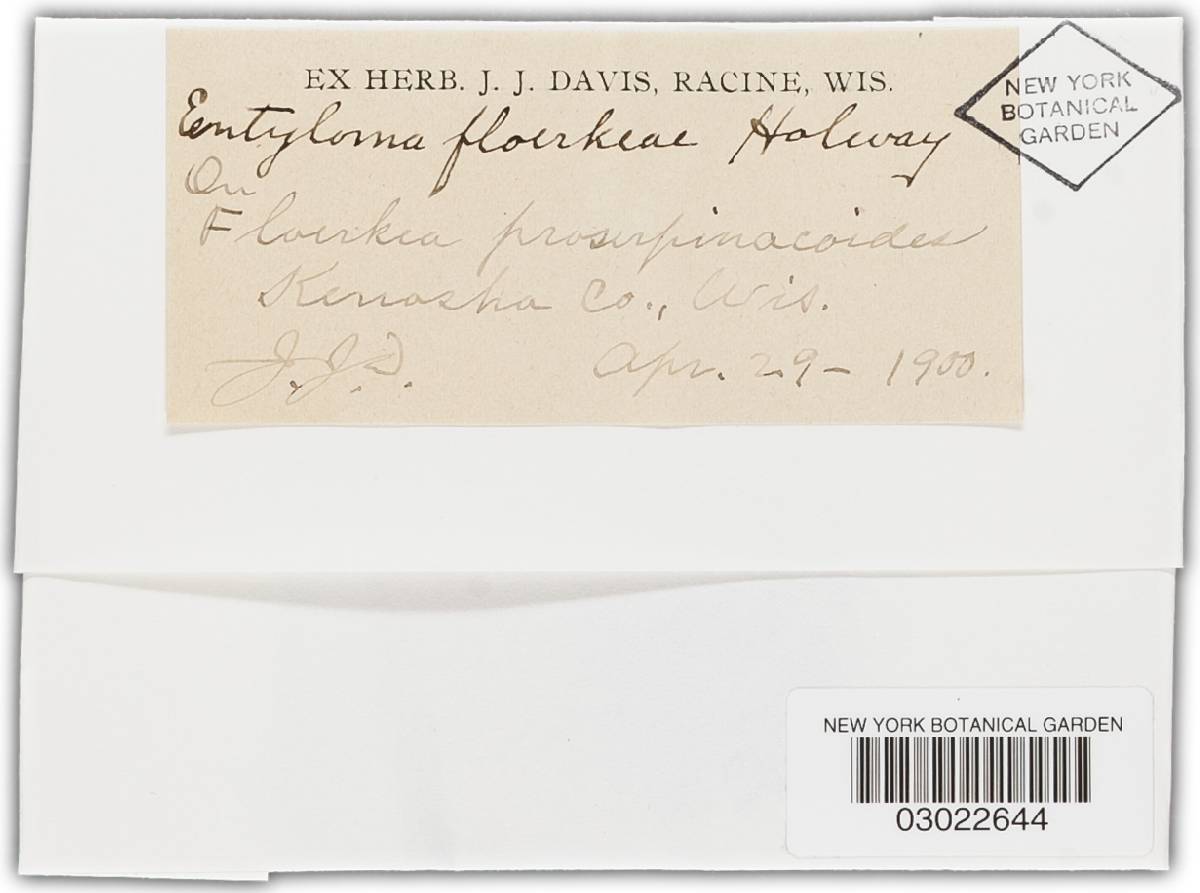 EX HERB. J. J. DAVIS, RACINE, WIS.
Entyloma floerkeae Holway
On
Floerkea proserpinacoides
Kenosha Co., Wis.
J.J.D. Apr. 29 - 1900.
NEW YORK
BOTANICAL
GARDEN
NEW YORK BOTANICAL GARDEN
03022644